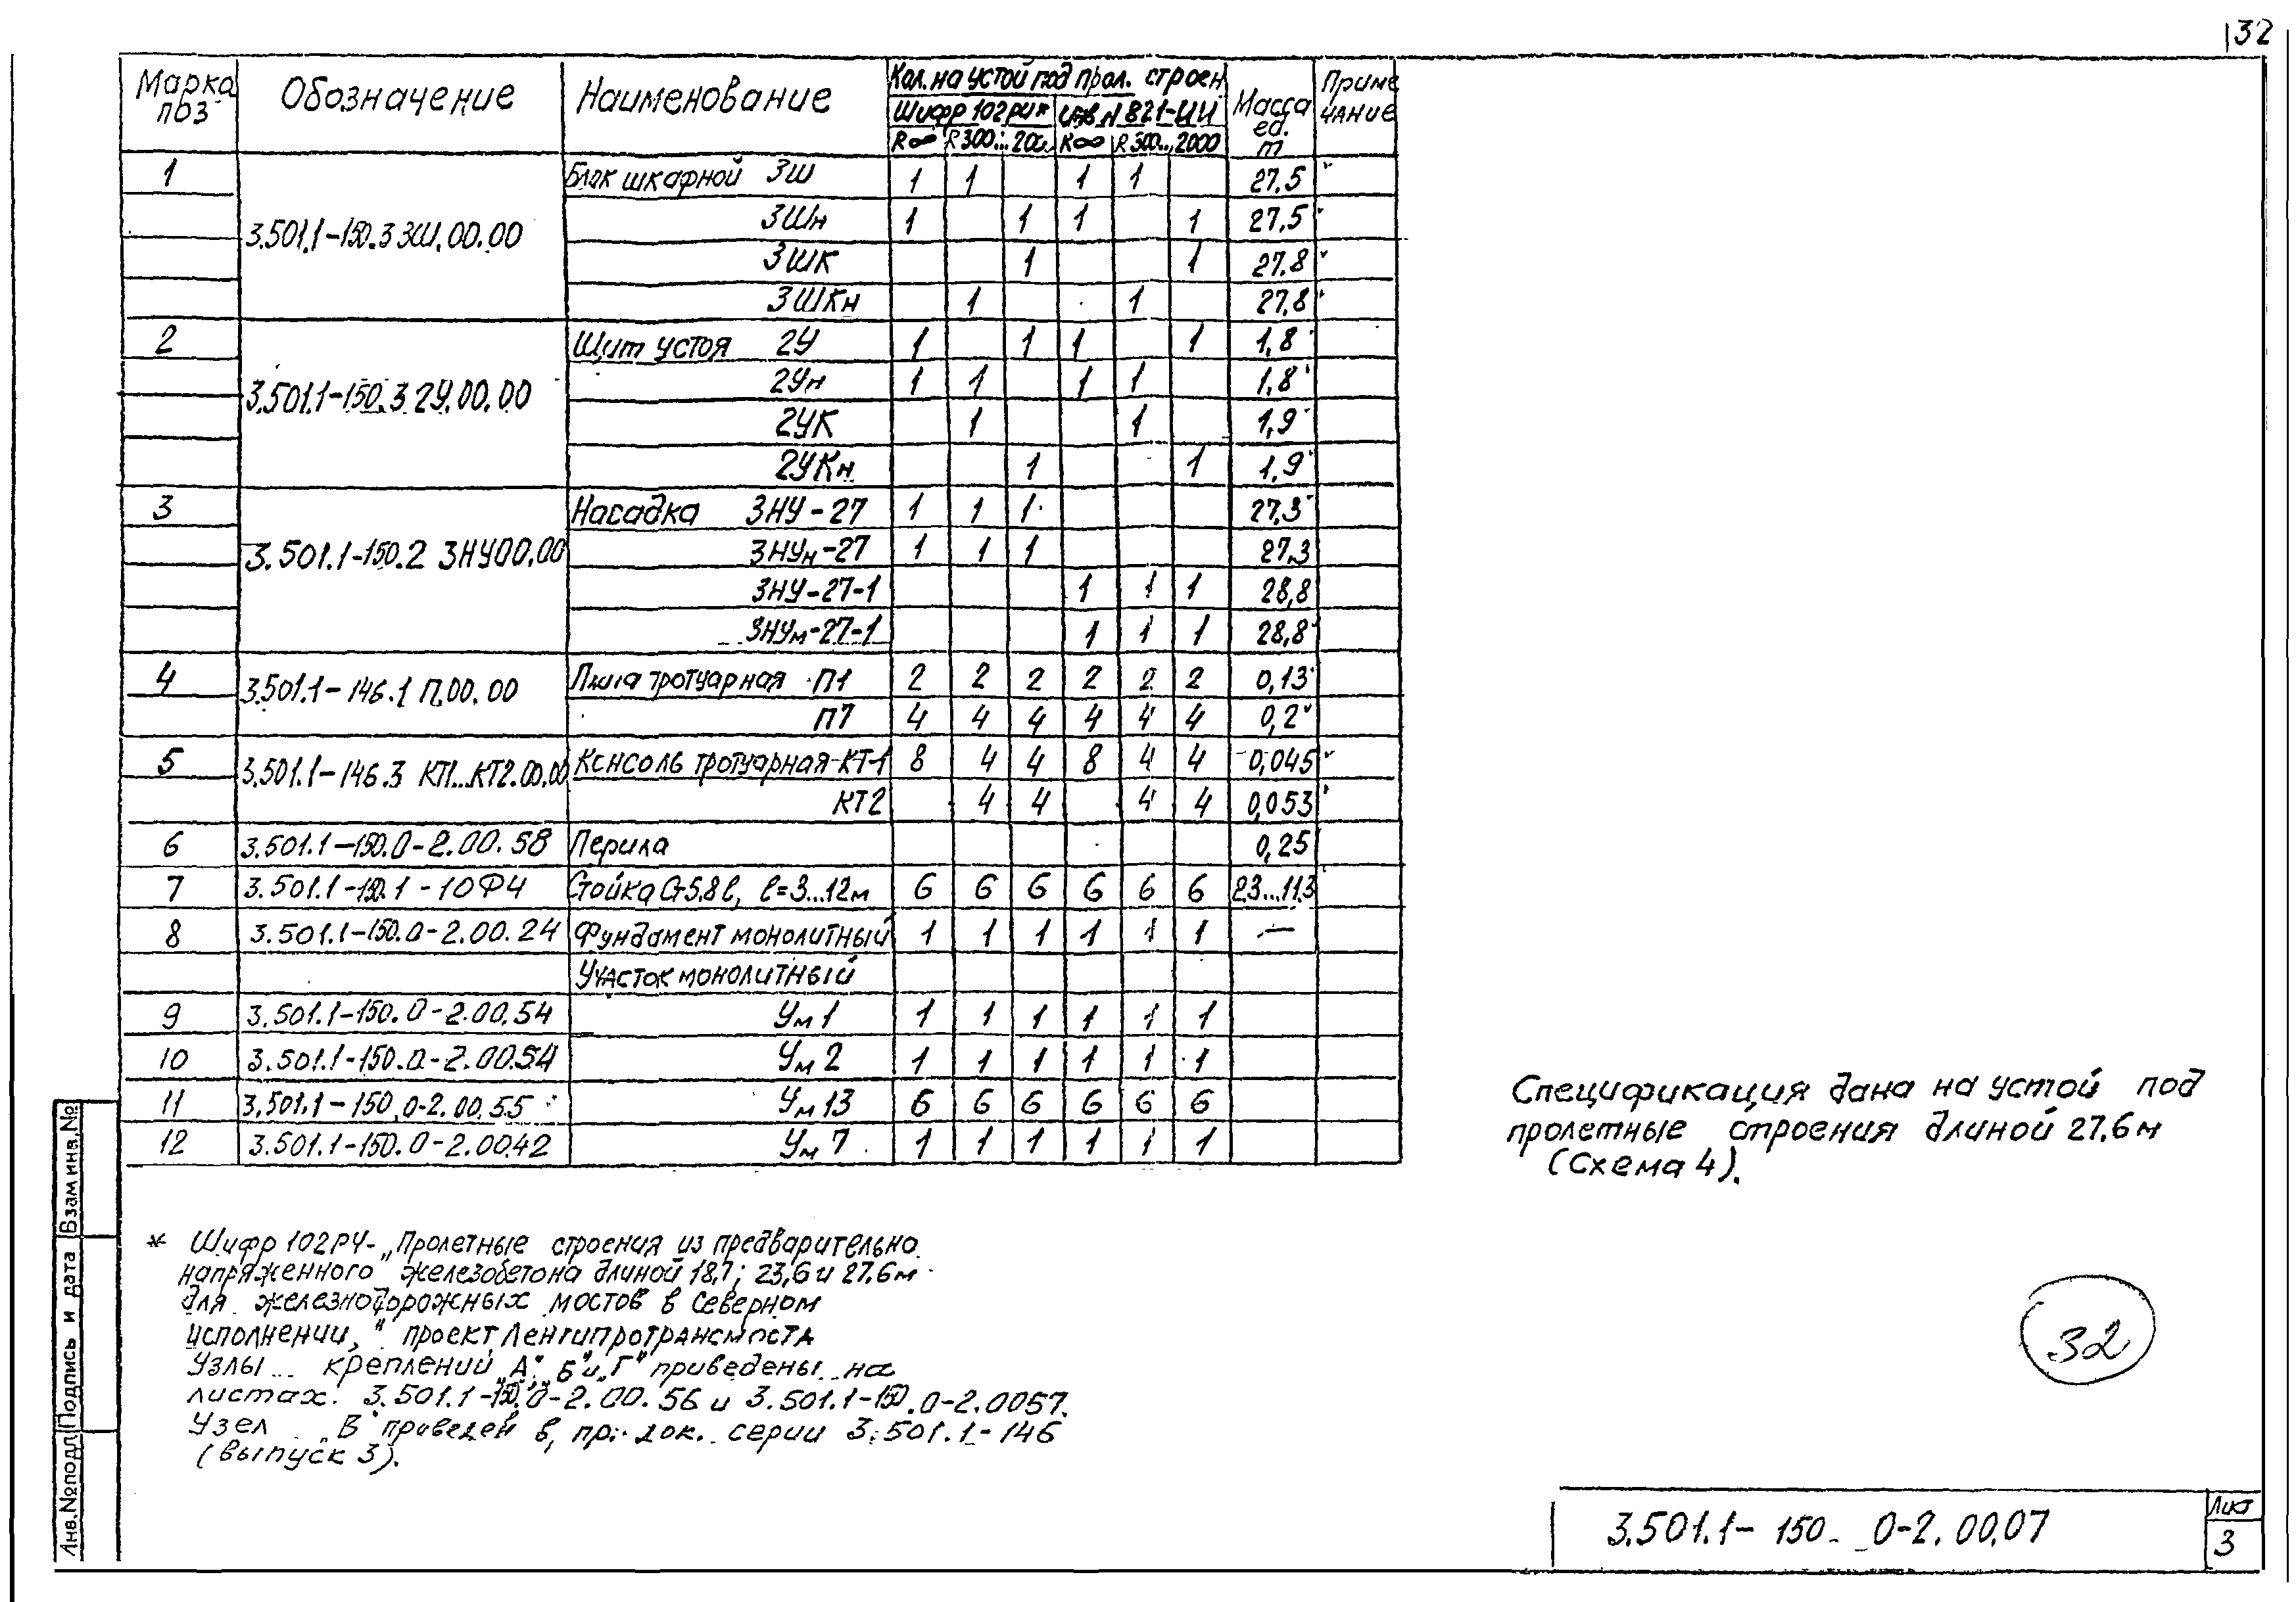 32
Марка поз | Обозначение | Наименование | Кол. на устой под прол. строен | Масса ед. т | Примечание
Шифр 102РЧ* | Инв. N 821-
R∞ | R300... | 200. | R∞ | R300.., | 2000
1 | 3.501.1-150.3 3Ш.00.00 | Блок шкафной 3Ш | 1 | 1 | | 1 | 1 | | 27.5
3Шн | 1 | | 1 | 1 | | 1 | 27,5
3ШК | | | 1 | | | 1 | 27.8
3ШКн | | 1 | | | 1 | | 27,8
2 | 3.501.1-150.3 2У.00.00 | Щит устоя 2У | 1 | | 1 | 1 | | 1 | 1,8
2Ун | 1 | 1 | | 1 | 1 | | 1,8
2УК | | 1 | | | 1 | | 1,9
2УКн | | | 1 | | | 1 | 1,9
3 | 3.501.1-150.2 3НУ00.00 | Насадка 3НУ-27 | 1 | 1 | 1 | | | | 27,3
3НУн-27 | 1 | 1 | 1 | | | | 27,3
3НУ-27-1 | | | | 1 | 1 | 1 | 28,8
3НУм-27-1 | | | | 1 | 1 | 1 | 28,8
4 | 3.501.1-146.1 П.00.00 | Плита тротуарная П1 | 2 | 2 | 2 | 2 | 2 | 2 | 0,13
П7 | 4 | 4 | 4 | 4 | 4 | 4 | 0,2
5 | 3.501.1-146.3 КТ1...КТ2.00.00 | Консоль тротуарная-КТ-1 | 8 | 4 | 4 | 8 | 4 | 4 | 0,045
КТ2 | | 4 | 4 | | 4 | 4 | 0,053
6 | 3.501.1-150.0-2.00.58 | Перила | | | | | | | 0,25
7 | 3.501.1-150.1-10Ф4 | Стойка С-5.8l, l=3...12м | 6 | 6 | 6 | 6 | 6 | 6 | 2.3...11.3
8 | 3.501.1-150.0-2.00.24 | Фундамент монолитный | 1 | 1 | 1 | 1 | 1 | 1 | —
Участок монолитный
9 | 3.501.1-150.0-2.00.54 | Ум 1 | 1 | 1 | 1 | 1 | 1 | 1
10 | 3.501.1-150.0-2.00.54 | Ум 2 | 1 | 1 | 1 | 1 | 1 | 1
11 | 3.501.1-150.0-2.00.55 | Ум 13 | 6 | 6 | 6 | 6 | 6 | 6
12 | 3.501.1-150.0-2.0042 | Ум 7 | 1 | 1 | 1 | 1 | 1 | 1
Спецификация дана на устой под
пролетные строения длиной 27.6м
(Схема 4).
* Шифр 102РЧ-„Пролетные строения из предварительно
напряженного железобетона длиной 18,7; 23,6 и 27.6м
для железнодорожных мостов в Северном
исполнении," проект Ленгипротрансмоста
Узлы креплений „А", „Б" и „Г" приведены на
листах 3.501.1-150.0-2.00.56 и 3.501.1-150.0-2.0057.
Узел „В" приведен в пр. док. серии 3.501.1-146
(выпуск 3).
32
3.501.1-150. 0-2.00.07
Лист
3
Инв.№подл
Подпись и дата
Взам инв.№